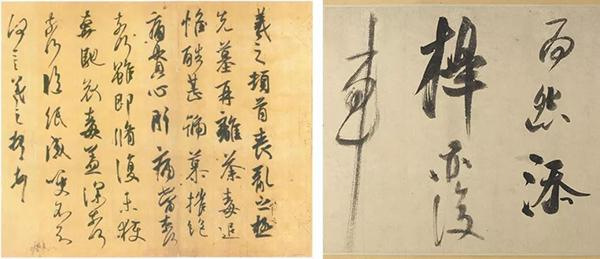 羲之頓首喪亂之極
先墓再離荼毒追
惟酷甚號慕摧絕
痛貫心肝痛當柰何
柰何雖即脩復未獲
奔馳哀毒益深柰何
柰何臨紙感哽不知
何言羲之頓首頓首
然添